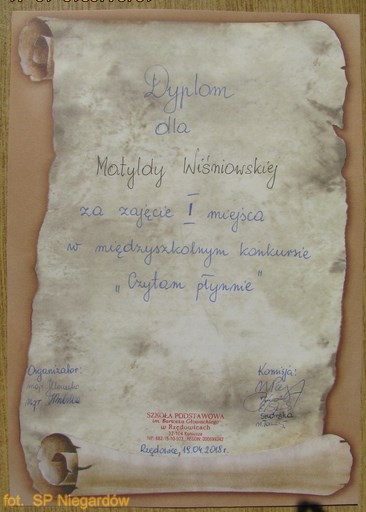 Dyplom
dla
Matyldy Wiśniowskiej
za zajęcie I miejsca
w międzyszkolnym konkursie
„Czytam płynnie"
Organizator:
Komisja:
mgr
mgr
SZKOŁA PODSTAWOWA
im. Bartosza Głowackiego
w Rzędowicach
Rzędowice, 19.04.2018 r.
fot. SP Niegardów